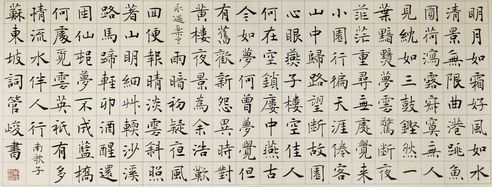 明月如霜好風如水
清景無限曲港跳魚
圓荷瀉露寂寞無人
見紞如三鼓鏗然一
葉黯黯夢雲驚斷夜
茫茫重尋無處覺來
小園行徧天涯倦客
山中歸路望斷故園
心眼燕子樓空佳人
何在空鎖樓中燕古
今如夢何曾夢覺但
有舊歡新怨異時對
黃樓夜景為余浩歎
永遇樂 雨暗初疑夜風
回便報晴淡雲斜照
著山明細艸輭沙溪
路馬蹄輕卯酒醒還
困仙邨夢不成藍橋
何處覓雲英祇有多
情流水伴人行 南歌子
蘇東坡詞管峻書